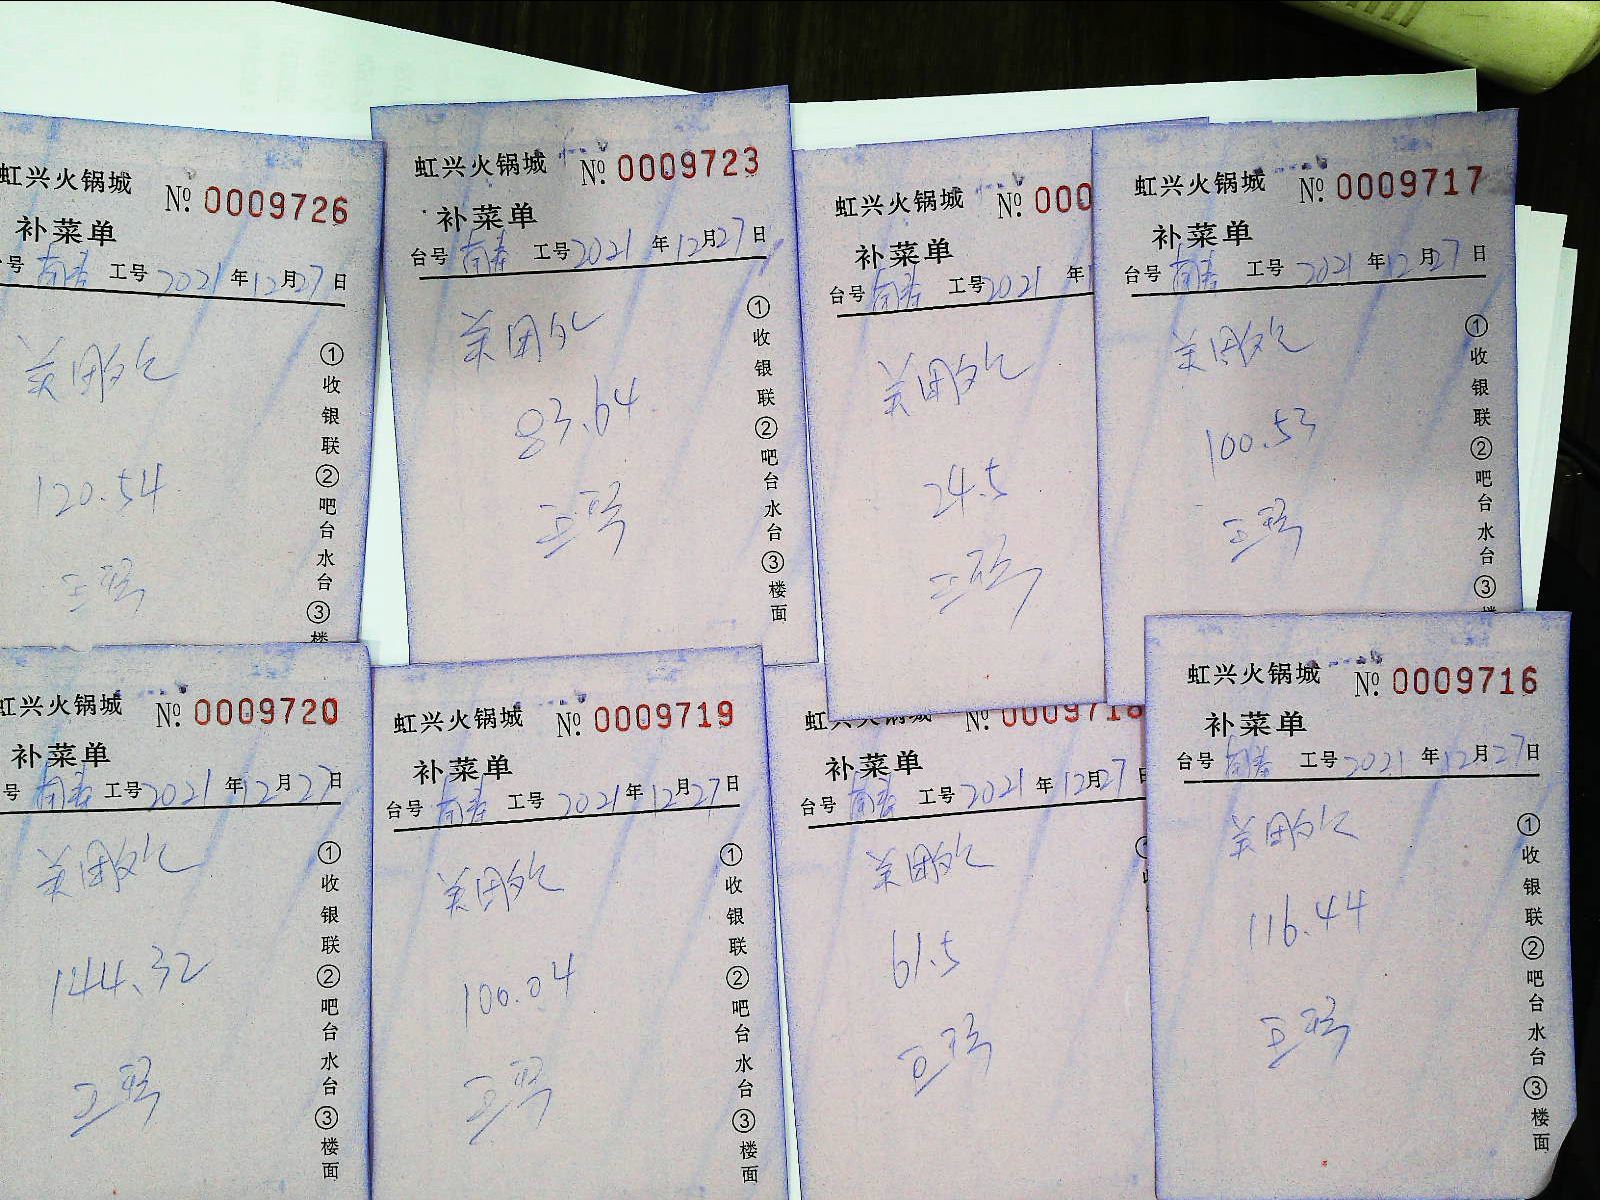 虹兴火锅城 № 0009726
补菜单
号 南春 工号 2021 年 12 月 27 日
美团外
120.54
①收银联②吧台水台③楼
虹兴火锅城 № 0009723
补菜单
台号 南春 工号 2021 年 12 月 27 日
美团外
83.64
①收银联②吧台水台③楼面
虹兴火锅城 № 000
补菜单
台号 南春 工号 2021 年
美团外
24.5
虹兴火锅城 № 0009717
补菜单
台号 南春 工号 2021 年 12 月 27 日
美团外
100.53
①收银联②吧台水台③
虹兴火锅城 № 0009720
补菜单
号 南春 工号 2021 年 12 月 27 日
美团外
144.32
①收银联②吧台水台③楼面
虹兴火锅城 № 0009719
补菜单
台号 南春 工号 2021 年 12 月 27 日
美团外
100.04
①收银联②吧台水台③楼面
虹兴火锅城 № 0009718
补菜单
台号 南春 工号 2021 年 12 月 27 日
美团外
61.5
虹兴火锅城 № 0009716
补菜单
台号 南春 工号 2021 年 12 月 27 日
美团外
116.44
①收银联②吧台水台③楼面